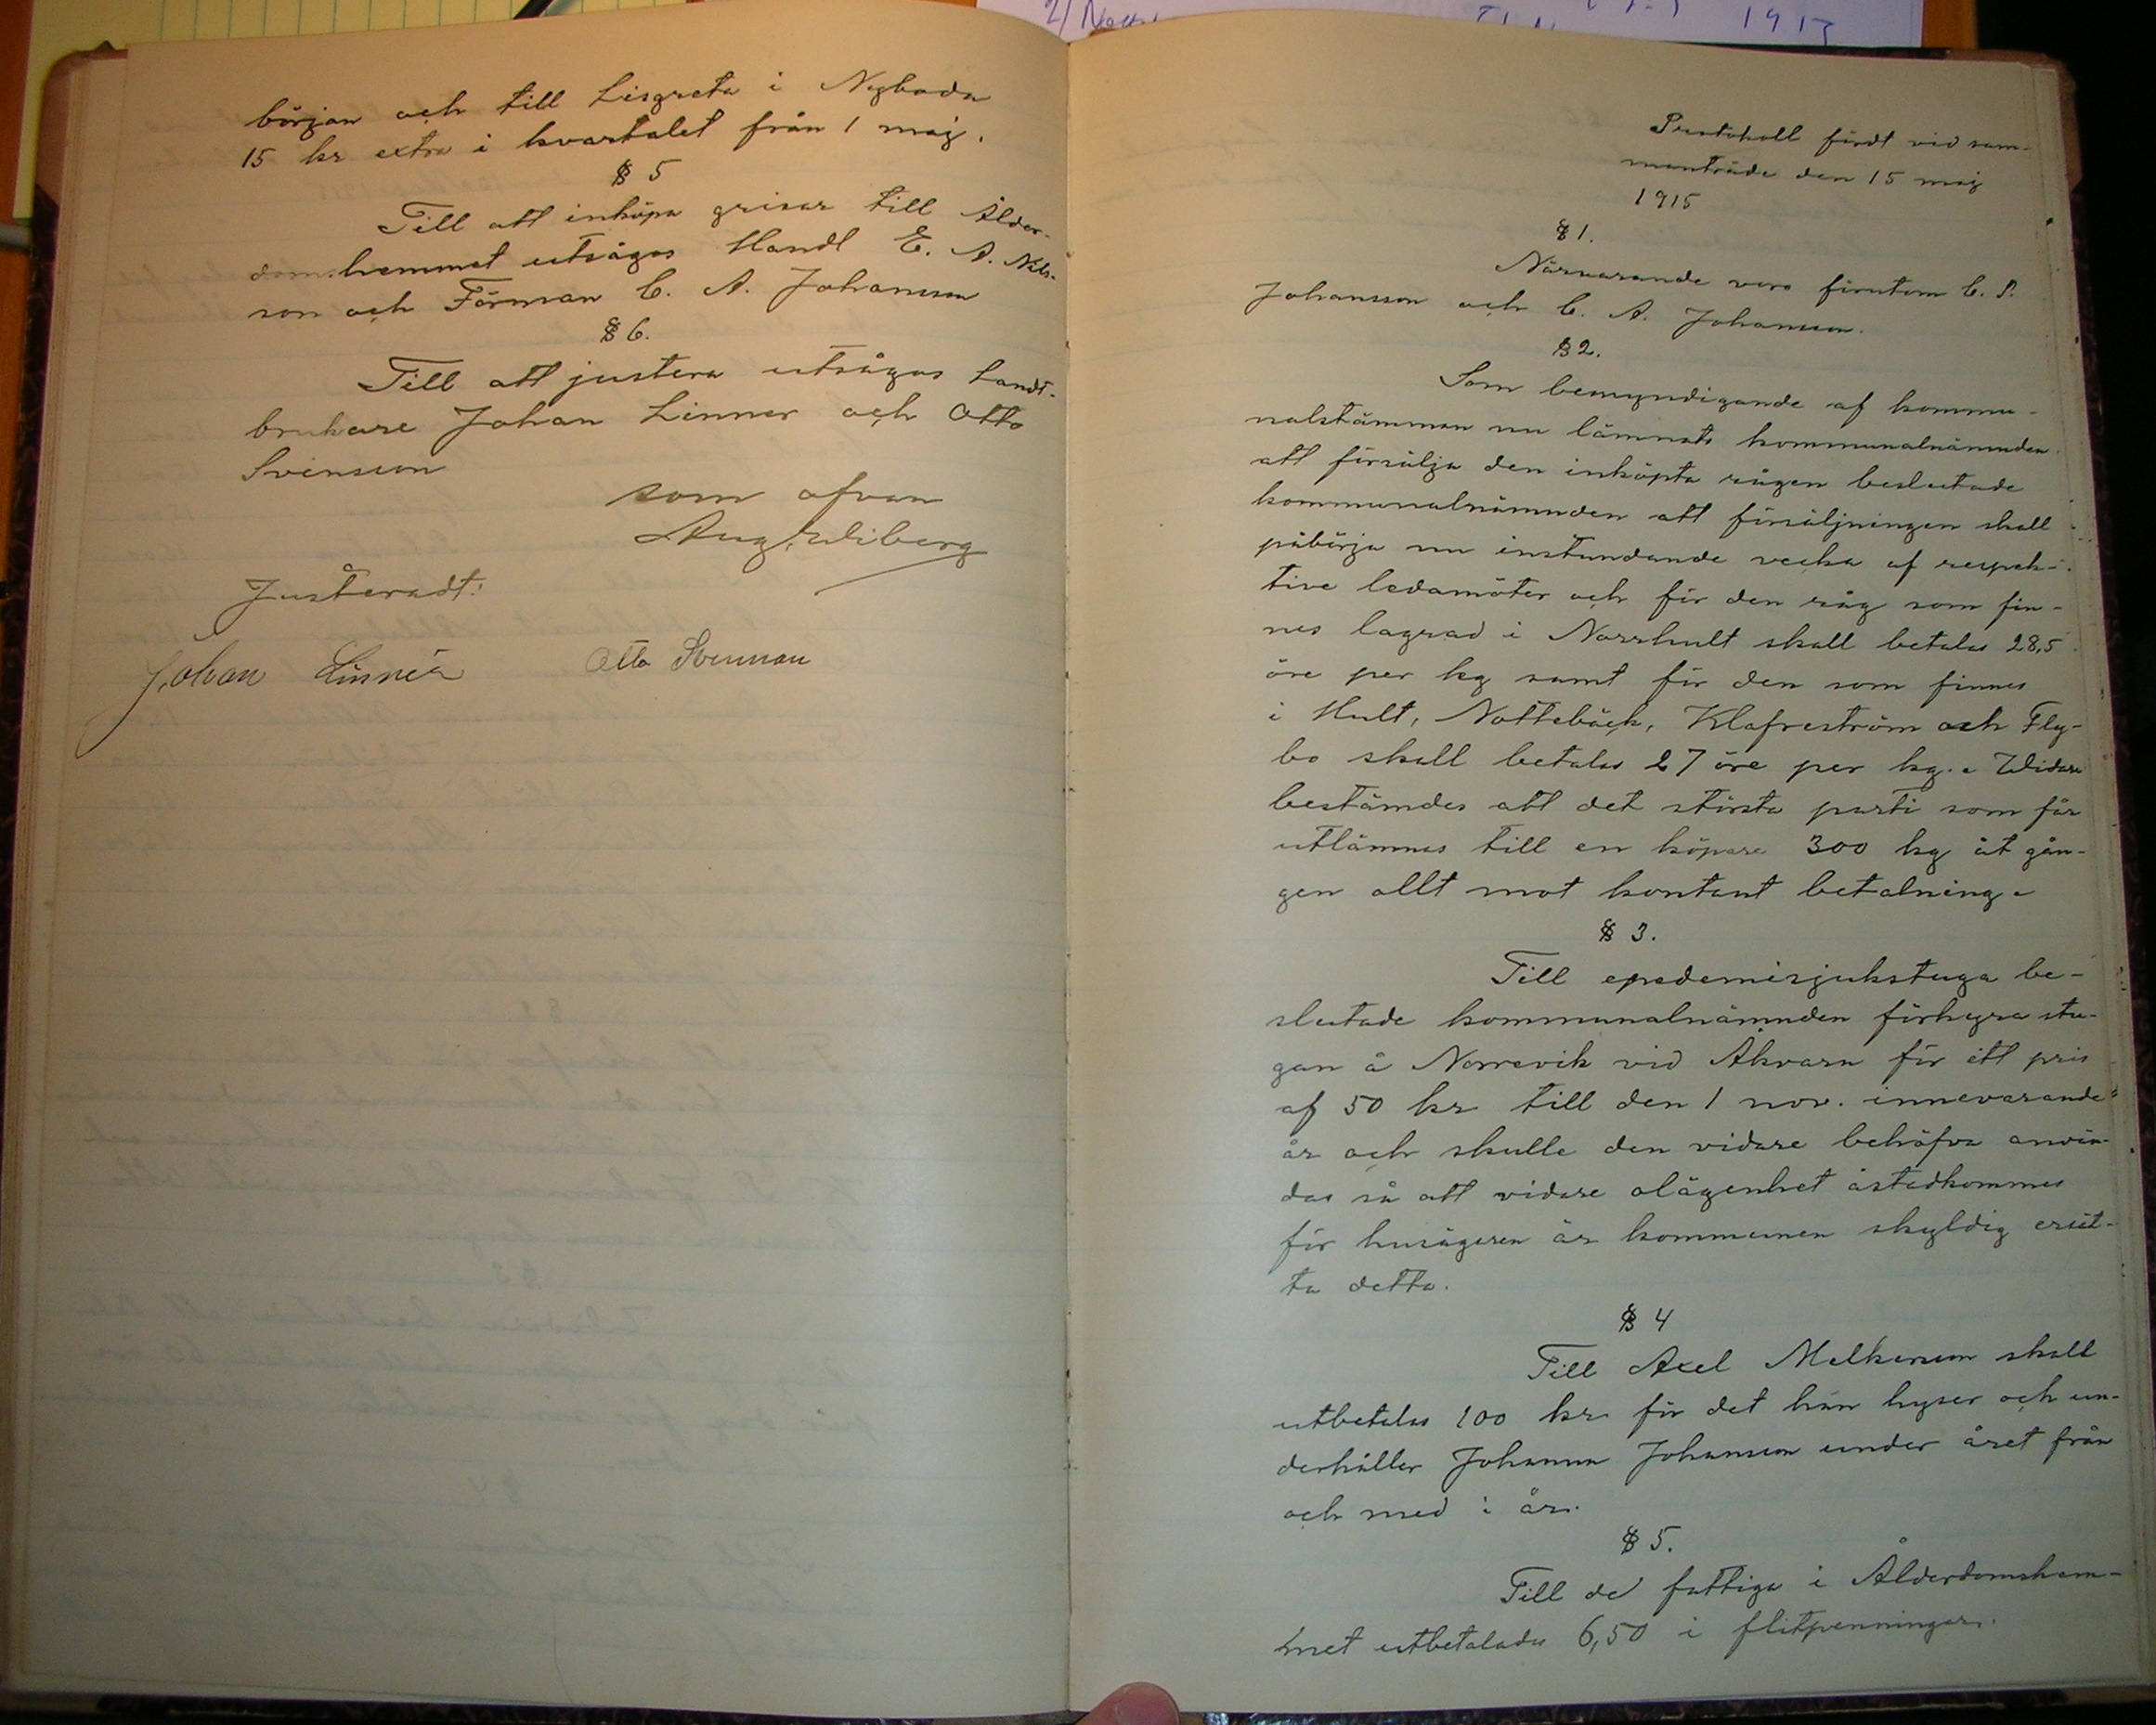 början och till Lisgreta i Nyboda
15 kr extra i kvartalet från 1 maj.
§ 5
Till att inköpa grisar till Ålder-
domshemmet utsågos Handl E. A. Nils-
son och Förman C. A. Johansson
§ 6.
Till att justera utsågos Landt-
brukare Johan Linner och Otto
Svensson
som ofvan
Aug. Wiberg
Justeradt:
Johan Linnér Otto Svensson
2/
1915
Protokoll fördt vid sam-
manträde den 15 maj
1915
§ 1.
Närvarande voro förutom C. P.
Johansson och C. A. Johansson.
§ 2.
Som bemyndigande af kommu-
nalstämman nu lämnats kommunalnämnden
att försälja den inköpta rågen beslutade
kommunalnämnden att försäljningen skall
påbörja nu instundande vecka af respek-
tive ledamöter och för den råg som fin-
nes lagrad i Norrhult skall betalas 28,5
öre per kg samt för den som finnes
i Hult, Nottebäck, Klafreström och Fly-
bo skall betalas 27 öre per kg. Widare
bestämdes att det största parti som får
utlämnas till en köpare 300 kg åt gån-
gen allt mot kontant betalning.
§ 3.
Till epedemisjukstuga be-
slutade kommunalnämnden förhyra stu-
gan å Norrevik vid Åkvarn för ett pris
af 50 kr till den 1 nov. innevarande
år och skulle den vidare behöfva använ-
das så att vidare olägenhet åstadkommes
för husägaren är kommunen skyldig ersät-
ta detta.
§ 4
Till Axel Melkersson skall
utbetalas 100 kr för det han hyser och un-
derhåller Johanna Johansson under året från
och med i år.
§ 5.
Till de fattiga i Ålderdomshem-
met utbetalades 6,50 i flitpenningar.